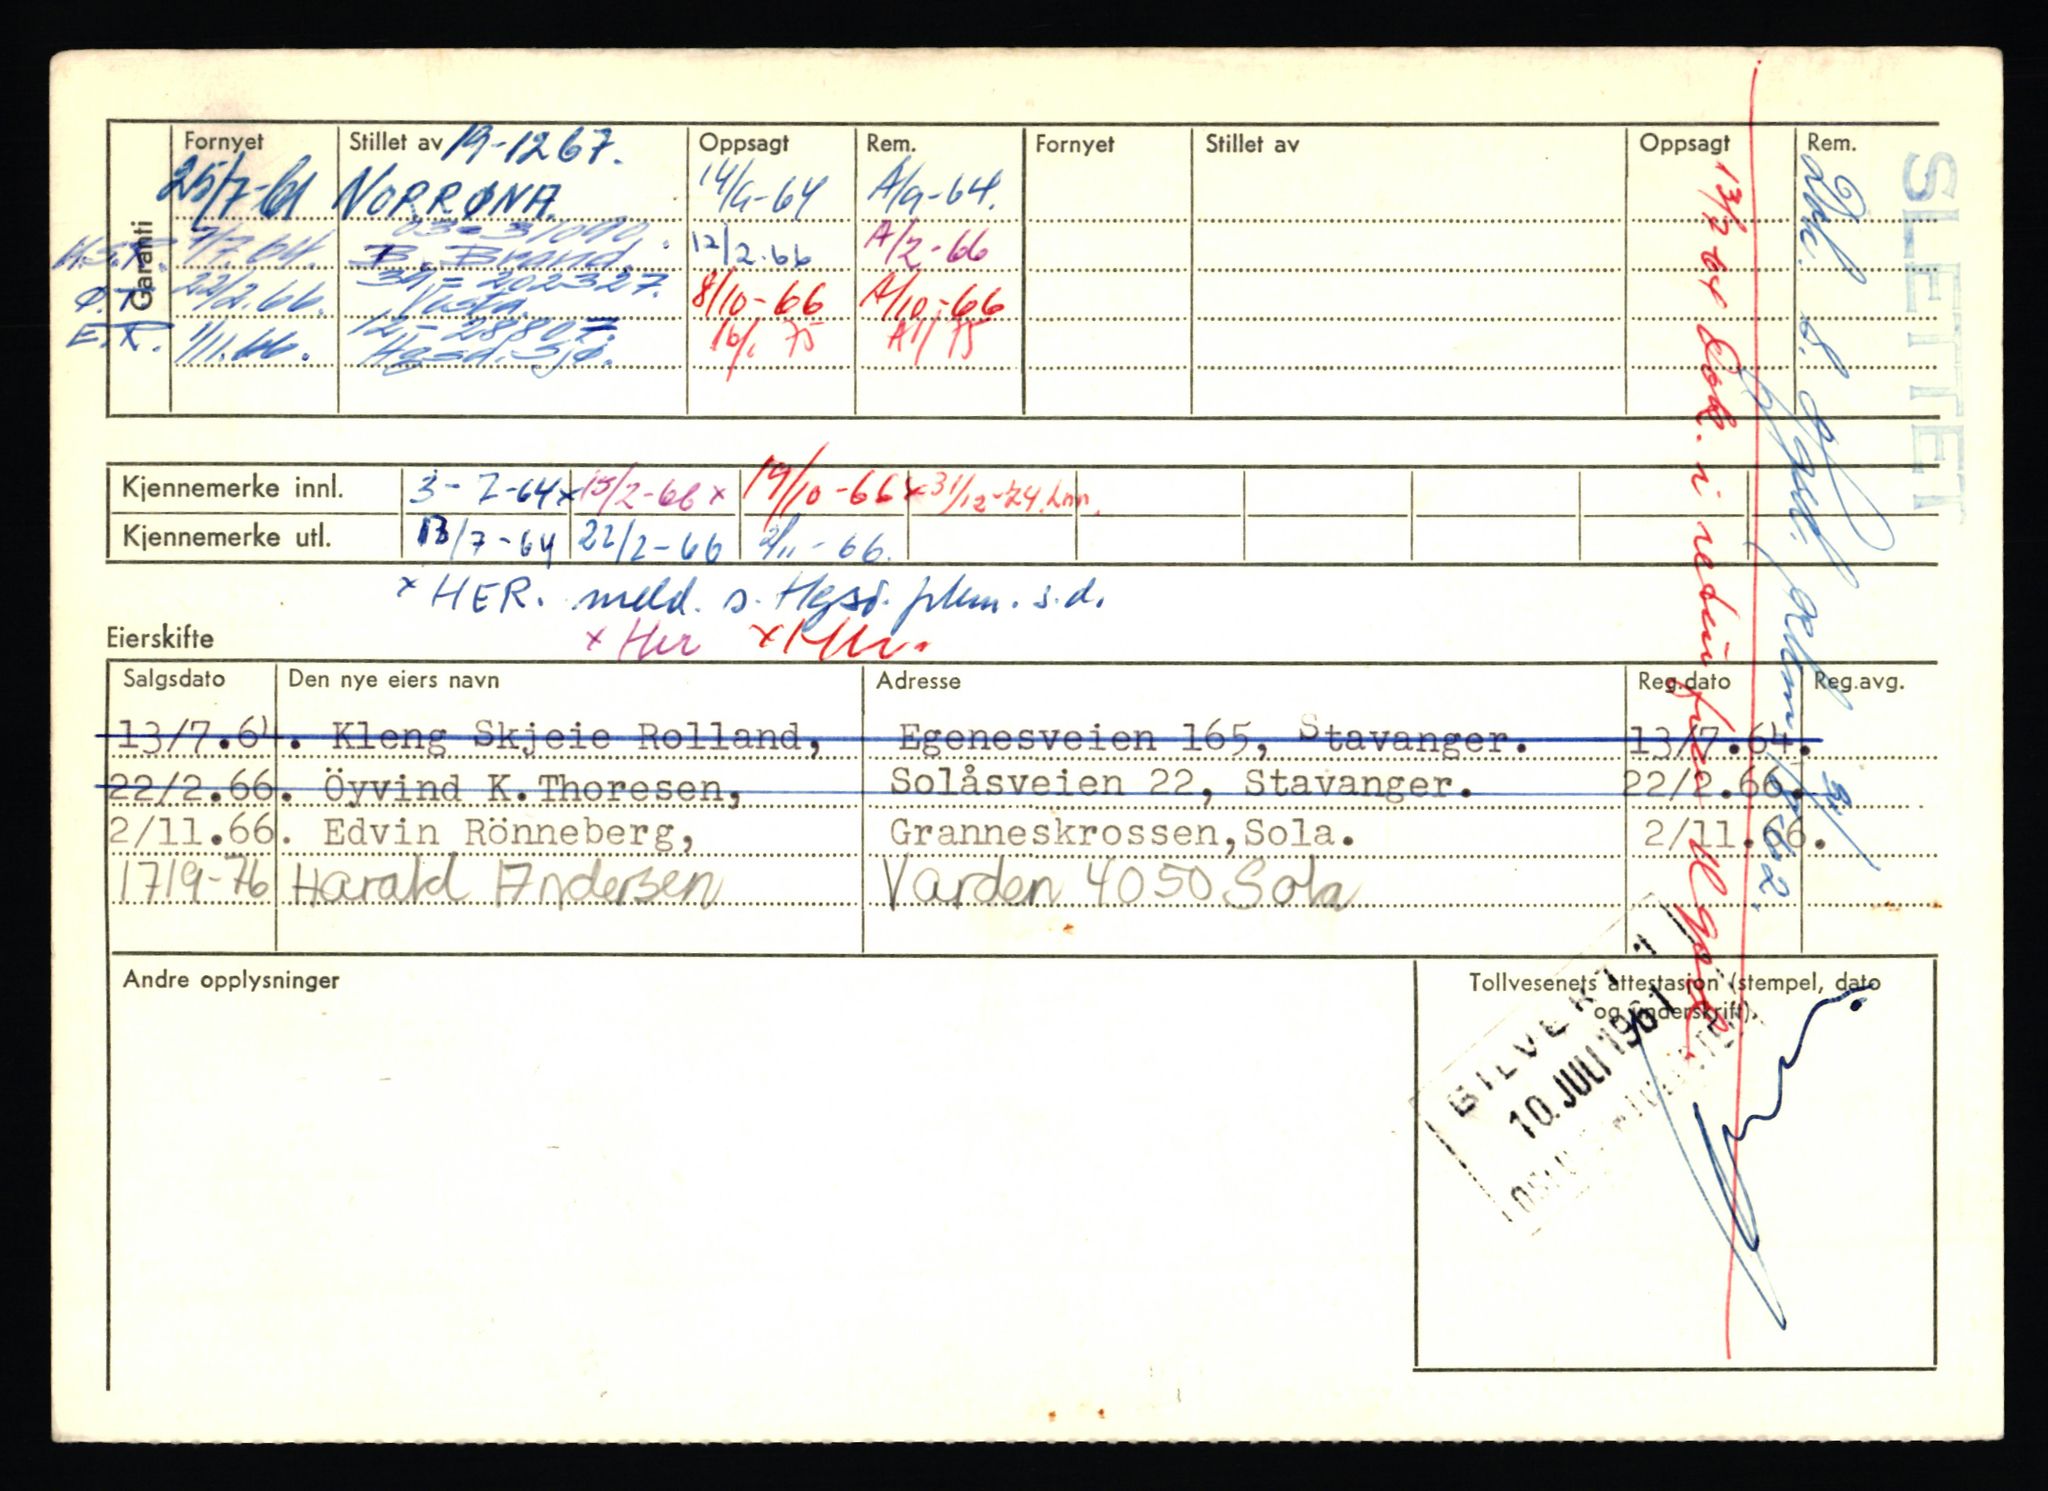 Garanti
Fornyet Stillet av 19-1267. Oppsagt Rem. Fornyet Stillet av Oppsagt Rem.
25/7-61 NORRØNA. 14/9-64 A/9-64.
03-31090.
7/7.64. B. Brand. 12/2.66 A/2-66
34-202327.
Ø.T. 22/2.66. Vesta. 8/10-66 A/10-66
12-28807.
E.R. 1/11.66. Hgsd. Sjø. 16/1 75 A1/75
Kjennemerke innl. 3-7-64x 15/2-66x 19/10-66x 31/12-74.
Kjennemerke utl. 13/7-64 22/2-66 2/11-66.
x HER. meld. s. Hgsd. s.d.
x Her x Her.
Eierskifte
Salgsdato Den nye eiers navn Adresse Reg.dato Reg.avg.
13/7.64. Kleng Skjeie Rolland, Egenesveien 165, Stavanger. 13/7.64.
22/2.66. Öyvind K.Thoresen, Solåsveien 22, Stavanger. 22/2.66.
2/11.66. Edvin Rönneberg, Granneskrossen,Sola. 2/11.66.
17/9-76 Harald Andersen Varden 4050 Sola
Andre opplysninger
Tollvesenets attestasjon (stempel, dato
og underskrift).
10. JULI 1961
SLETTET